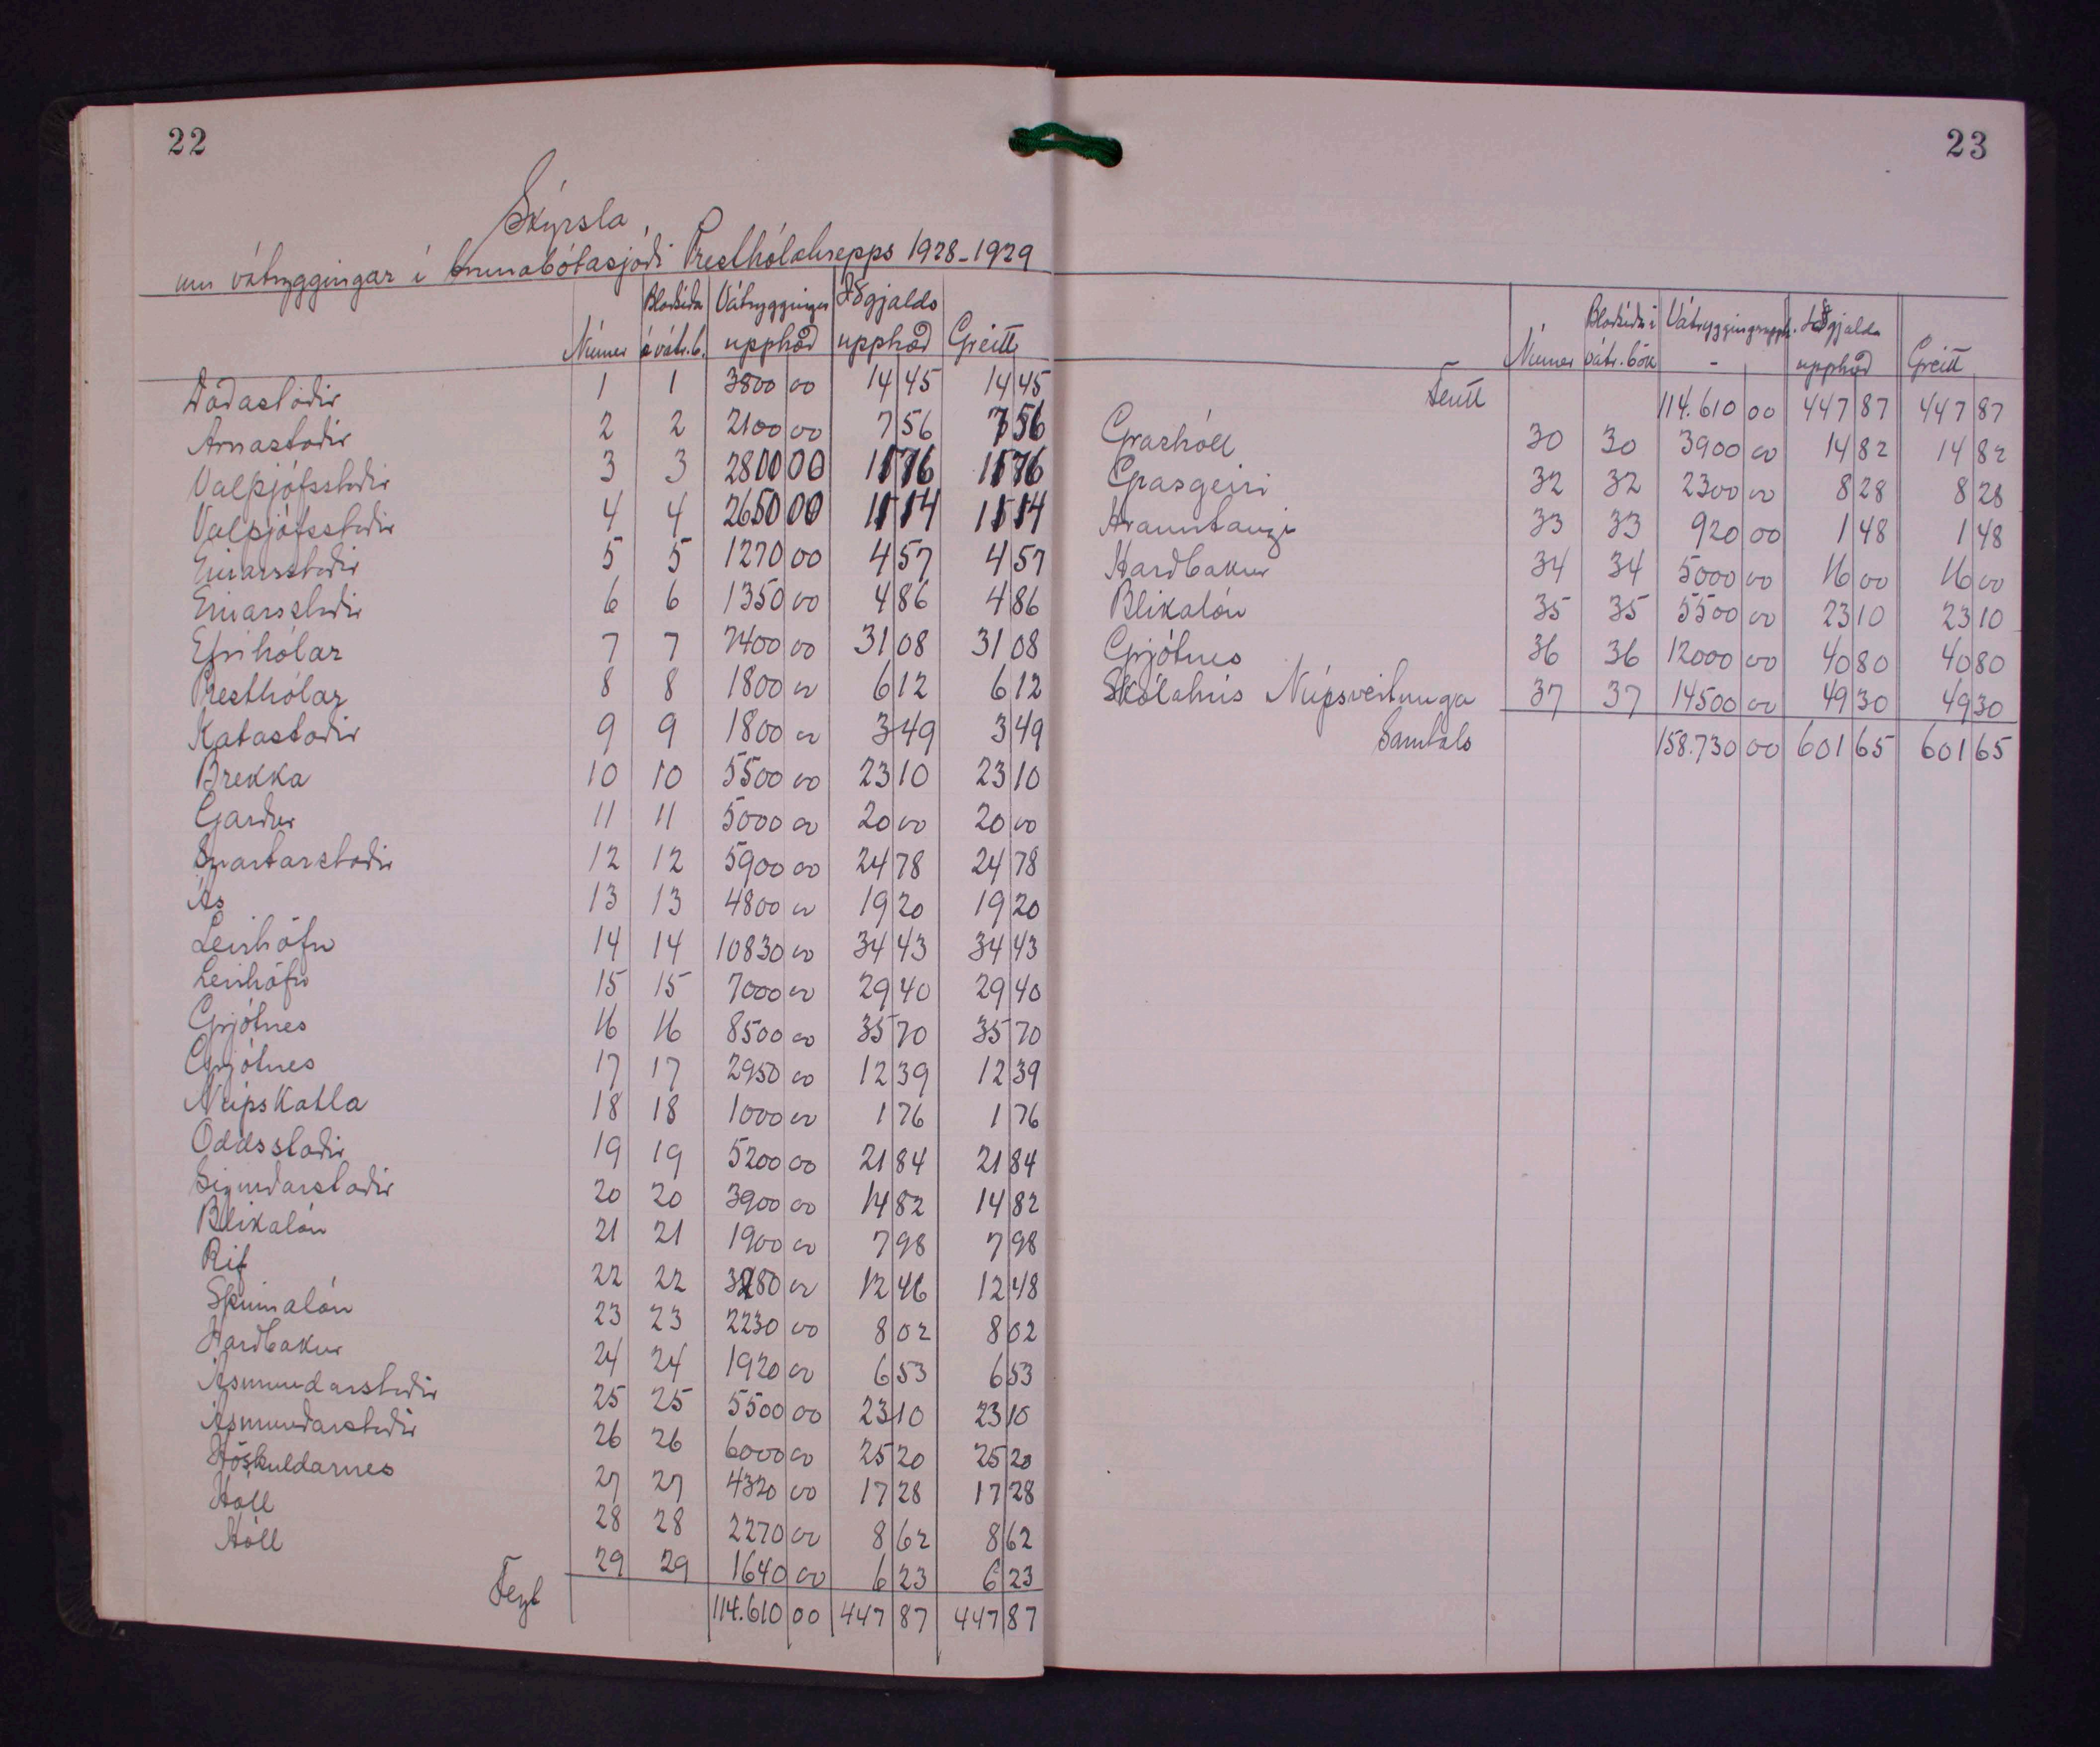 22
Skýrsla
um vátryggingar í brunabótasjóði Presthólahrepps 1928-1929
Númer Blaðsíða á vátr.b. Vátryggingar upphæð Iðgjalds upphæð Greitt
Daðastaðir 1 1 3800 00 14 45 14 45
Arnastaðir 2 2 2100 00 7 56 7 56
Valþjófsstaðir 3 3 2800 00 11 76 11 76
Valþjófsstaðir 4 4 2650 00 11 14 11 14
Einarsstaðir 5 5 1270 00 4 57 4 57
Einarsstaðir 6 6 1350 00 4 86 4 86
Efrihólar 7 7 7400 00 31 08 31 08
Presthólar 8 8 1800 00 6 12 6 12
Katastaðir 9 9 1800 00 3 49 3 49
Brekka 10 10 5500 00 23 10 23 10
Garður 11 11 5000 00 20 00 20 00
Snartarstaðir 12 12 5900 00 24 78 24 78
Ás 13 13 4800 00 19 20 19 20
Leirhöfn 14 14 10830 00 34 43 34 43
Leirhöfn 15 15 7000 00 29 40 29 40
Grjótnes 16 16 8500 00 35 70 35 70
Grjótnes 17 17 2950 00 12 39 12 39
Núpskatla 18 18 1000 00 1 76 1 76
Oddsstaðir 19 19 5200 00 21 84 21 84
Sigurðarstaðir 20 20 3900 00 14 82 14 82
Blikalón 21 21 1900 00 7 98 7 98
Rif 22 22 3280 00 12 46 12 48
Skinnalón 23 23 2230 00 8 02 8 02
Harðbakur 24 24 1920 00 6 53 6 53
Ásmundarstaðir 25 25 5500 00 23 10 23 10
Ásmundarstaðir 26 26 6000 00 25 20 25 20
Höskuldarnes 27 27 4320 00 17 28 17 28
Hóll 28 28 2270 00 8 62 8 62
Hóll 29 29 1640 00 6 23 6 23
Flyt 114.610 00 447 87 447 87
23
Númer Blaðsíða í vátr. bók Vátryggingarupph. - Iðgjalda upphæð Greitt
Flutt 114.610 00 447 87 447 87
Grashóll 30 30 3900 00 14 82 14 82
Grasgeiri 32 32 2300 00 8 28 8 28
Hrauntangi 33 33 920 00 1 48 1 48
Harðbakur 34 34 5000 00 16 00 16 00
Blikalón 35 35 5500 00 23 10 23 10
Grjótnes 36 36 12000 00 40 80 40 80
Skólahús Núpsveitunga 37 37 14500 00 49 30 49 30
Samtals 158.730 00 601 65 601 65